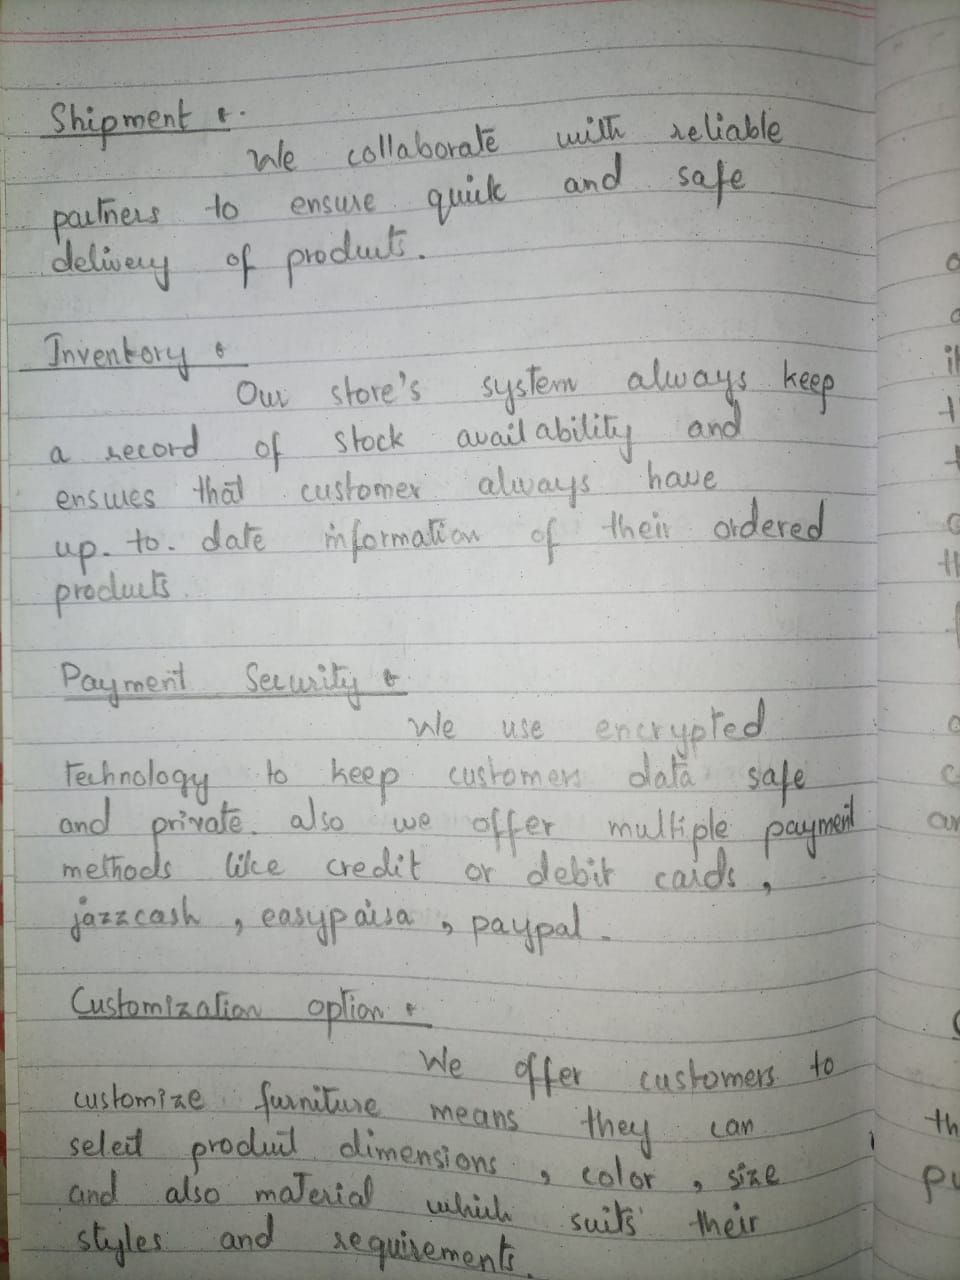 Shipment :-
We collaborate with reliable
partners to ensure quick and safe
delivery of products.
Inventory :
Our store's system always keep
a record of stock availability and
ensures that customer always have
up-to-date information of their ordered
products.
Payment Security :
We use encrypted
technology to keep customers data safe
and private. also we offer multiple payment
methods like credit or debit cards,
jazzcash, easypaisa, paypal.
Customization option :
We offer customers to
customize furniture means they can
select product dimensions, color, size
and also material which suits their
styles and requirements.